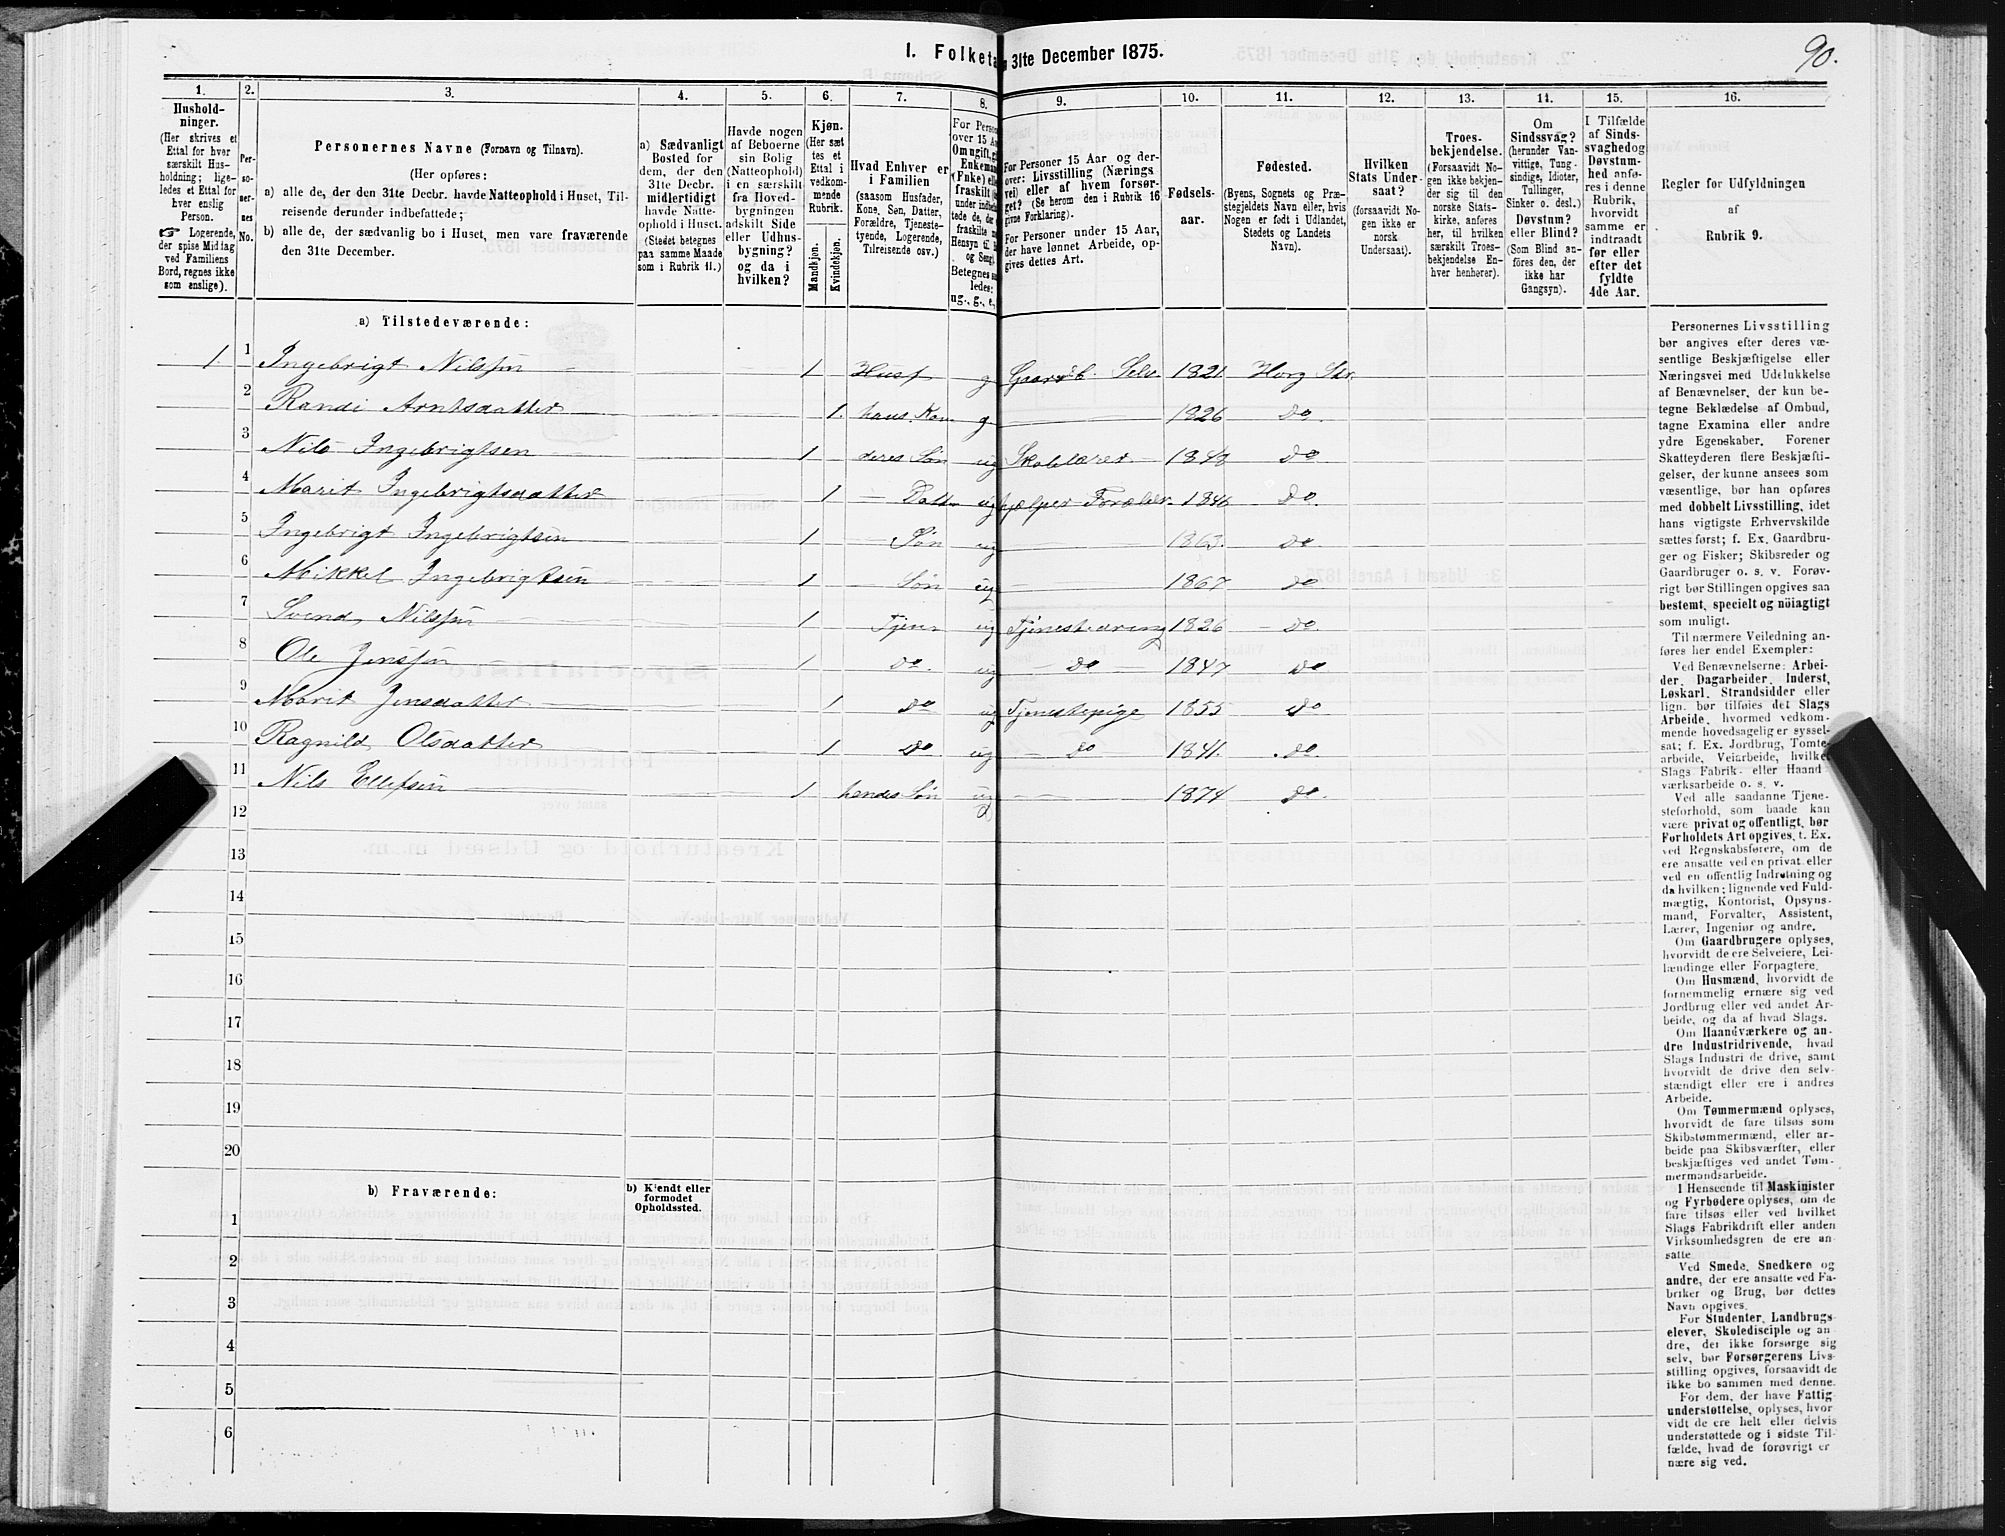 90.
1. Folketa 31te December 1875.
1. 2. 3. 4. 5. 6. 7. 8. 9. 10. 11. 12. 13. 14. 15. 16.
Hushold-
ninger.
(Her skrives et
Ettal for hver
særskilt Hus-
holdning; lige-
ledes et Ettal for
hver enslig
Person.
☞ Logerende,
der spise Middag
ved Familiens
Bord, regnes ikke
som enslige).
Per-
so-
ner-
nes
No.
Personernes Navne (Fornavn og Tilnavn).
(Her opføres:
a) alle de, der den 31te Decbr. havde Natteophold i Huset, Til-
reisende derunder indbefattede;
b) alle de, der sædvanlig bo i Huset, men vare fraværende
den 31te December.
a) Sædvanligt
Bosted for
dem, der den
31te Decbr.
midlertidigt
havde Natte-
ophold i Huset.
(Stedet betegnes
paa samme Maade
som i Rubrik 11.)
Havde nogen
af Beboerne
sin Bolig
(Natteophold)
i en særskilt
fra Hoved-
bygningen
adskilt Side
eller Udhus-
bygning?
og da i
hvilken?
Kjøn.
(Her sæt
tes et
Ettal i
vedkom-
mende
Rubrik.
Mandkjøn.
Kvindekjøn.
Hvad Enhver er
i Familien
(saasom Husfader,
Kone, Søn, Datter,
Forældre, Tjeneste-
tyende, Logerende,
Tilreisende osv.)
For Person
over 15 Aa
Om ugift, g
Enkema
(Fnke) el
fraskilt
under indbe
tede de, de
fraskilte
Hensyn til
og Seng
Betegnes s
ledes:
ug., g., e.,
For Personer 15 Aar og der-
over: Livsstilling (Nærings
vei) eller af hvem forsør-
get. (Se herom den i Rubrik 16
givne Forklaring).
For Personer under 15 Aar,
der have lønnet Arbeide, op-
gives dettes Art.
Fødsels-
aar.
Fødested.
(Byens, Sognets og Præ-
stegjeldets Navn eller, hvis
Nogen er født i Udlandet,
Stedets og Landets
Navn).
Hvilken
Stats Under-
saat?
(forsaavidt No-
gen ikke er
norsk
Undersaat).
Troes-
bekjendelse.
(Forsaavidt No-
gen ikke bekjen-
der sig til den
norske Stats-
kirke, anføres
her, til hvilken
særskilt Troes-
bekjendelse En-
hver henhører).
Om
Sindssvag?
(herunder Van-
vittige, Tung-
sindige, Idioter,
Tullinger,
Sinker o. desl.)
Døvstum?
eller Blind?
(Som Blind an-
føres den, der
ikke har
Gangsyn).
I Tilfælde
af Sinds-
svaghed og
Døvstum-
hed anfø-
res i denne
Rubrik,
hvorvidt
samme er
indtraadt
før eller
efter det
fyldte
4de Aar.
Regler for Udfyldningen
af
Rubrik 9.
a) Tilstedeværende:
1 1 Ingebrigt Nilssøn 1 Husf g Gaardb. Selv. 1821 Horg Skr.
2 Randi Arntsdatter 1. hans Kon g 1826 do
3 Nils Ingebrigtsen 1 deres Søn ug Skolelærer 1848 do
4 Marit Ingebrigtsdatter 1 Datt ug hjelper Foreldr. 1846 do
5 Ingebrigt Ingebrigtsen 1 Søn ug 1863. do
6 Mikkel Ingebrigtsen 1 Søn ug 1867 do
7 Svend Nilssøn 1 Tjen ug Tjenestdreng 1826 do
8 Ole Jenssøn 1 do. ug do 1847 do
9 Marit Jensdatter 1 do ug Tjenestepige 1855 do
10 Ragnild Olsdatter 1 do ug do 1841. do
11 Nils Ellefsen 1 hendes Søn ug 1874 do
12
13
14
15
16
17
18
19
20
b) Fraværende:
b) Kjendt eller
formodet
Opholdssted.
1
2
3
4
5
6
Personernes Livsstilling
bør angives efter deres væ-
sentlige Beskjæftigelse eller
Næringsvei med Udelukkelse
af Benævnelser, der kun be-
tegne Beklædelse af Ombud,
tagne Examina eller andre
ydre Egenskaber. Forener
Skatteyderen flere Beskjæfti-
gelser, der kunne ansees som
væsentlige, bør han opføres
med dobbelt Livsstilling, idet
hans vigtigste Erhvervskilde
sættes først; f. Ex. Gaardbru-
ger og Fisker; Skibsreder og
Gaardbruger o. s. v. Forøv-
rigt bør Stillingen opgives saa
bestemt, specielt og nøiagtigt
som muligt.
Til nærmere Veiledning an-
føres her endel Exempler:
Ved Benævnelserne: Arbei-
der, Dagarbeider, Inderst,
Løskarl, Strandsidder eller
lign. bør tilføies det Slags
Arbeide, hvormed vedkom-
mende hovedsagelig er syssel-
sat; f. Ex. Jordbrug, Tomte-
arbeide, Veiarbeide, hvilket
Slags Fabrik- eller Haand-
værksarbeide o. s. v.
Ved alle saadanne Tjene-
steforhold, som baade kan
være privat og offentligt, bør
Forholdets Art opgives, t. Ex.
ved Regnskabsførere, om de
ere ansatte ved en privat eller
ved en offentlig Indretning og
da hvilken; lignende ved Fuld-
mægtig, Kontorist, Opsyns-
mand, Forvalter, Assistent,
Lærer, Ingeniør og andre.
Om Gaardbrugere oplyses,
hvorvidt de ere Selveiere, Lei-
lændinge eller Forpagtere.
Om Husmænd, hvorvidt de
fornemmelig ernære sig ved
Jordbrug eller ved andet Ar-
beide, og da af hvad Slags.
Om Haandværkere og an-
dre Industridrivende, hvad
Slags Industri de drive, samt
hvorvidt de drive den selv-
stændigt eller ere i andres
Arbeide.
Om Tømmermænd oplyses,
hvorvidt de fare tilsøs som
Skibstømmermænd, eller ar-
beide paa Skibsværfter, eller
beskjæftiges ved andet Tøm-
mermandsarbeide.
I Henseende til Maskinister
og Fyrbødere oplyses, om de
fare tilsøs eller ved hvilket
Slags Fabrikdrift eller anden
Virksomhedsgren de ere an-
satte
Ved Smede, Snedkere og
andre, der ere ansatte ved Fa-
briker og Brug, bør dettes
Navn opgives.
For Studenter, Landbrugs-
elever, Skoledisciple og an-
dre, der ikke forsørge sig
selv, bør Forsørgerens Livs-
stilling opgives, forsaavidt de
ikke bo sammen med denne.
For dem, der have Fattig-
understøttelse, oplyses, hvor-
vidt de ere helt eller delvis
understøttede og i sidste Til-
fælde, hvad de forøvrigt er-
nære sig ved.